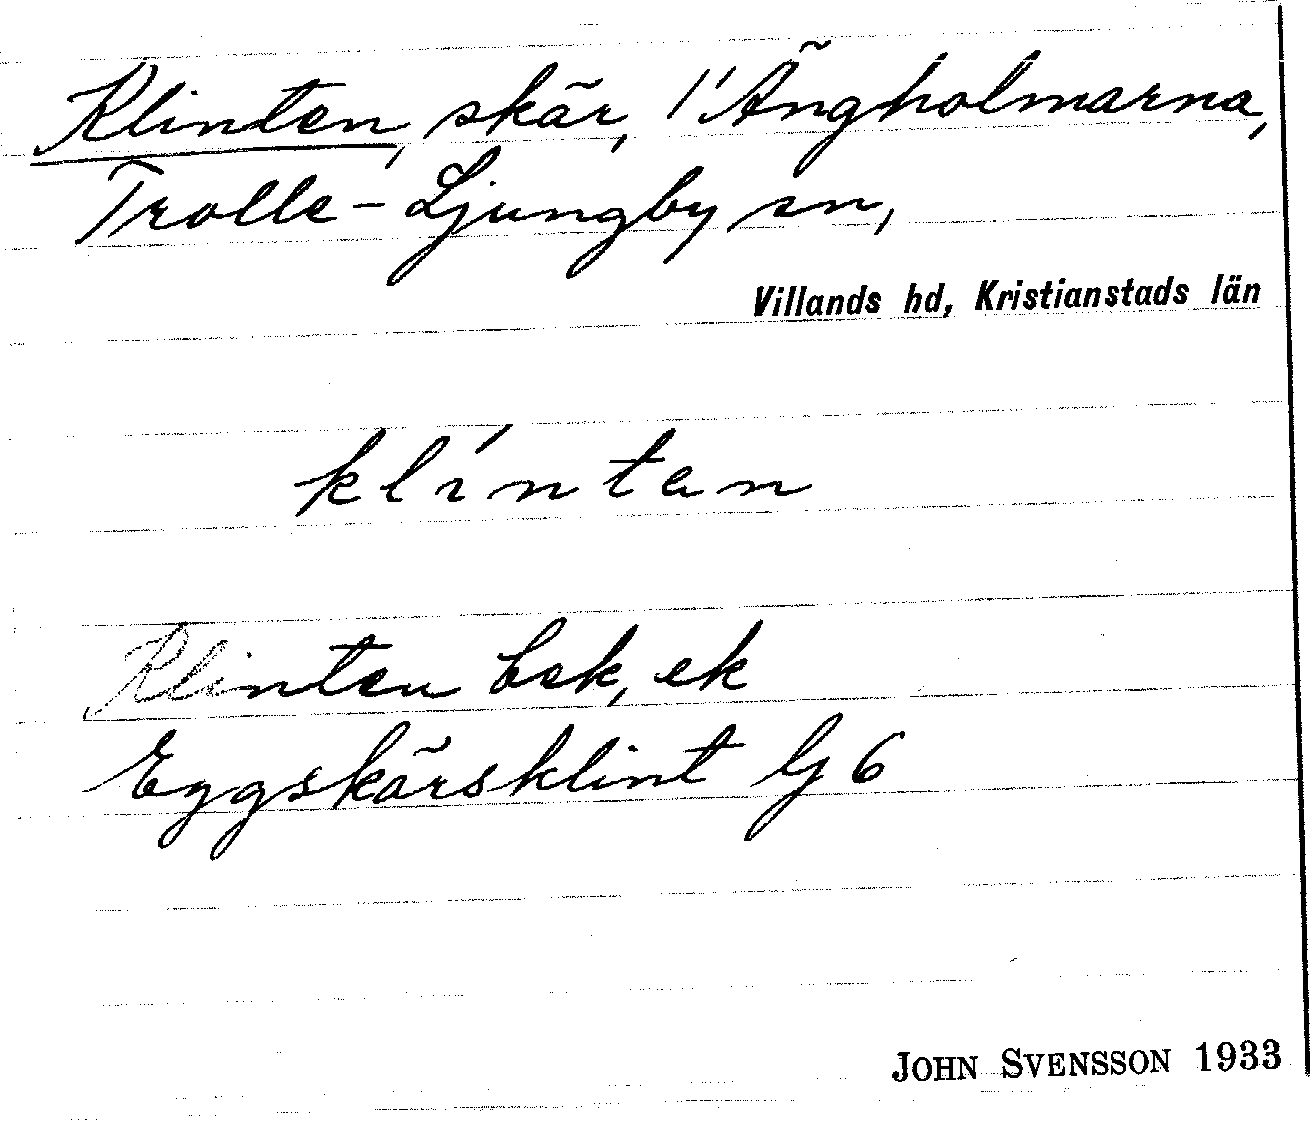 Klinten, skär, 1' Ängholmarna,
Trolle-Ljungby sn,
Villands hd, Kristianstads län
klíntan
Klinten bek, ek
Eggskärsklint Gj 6
JOHN SVENSSON 1933